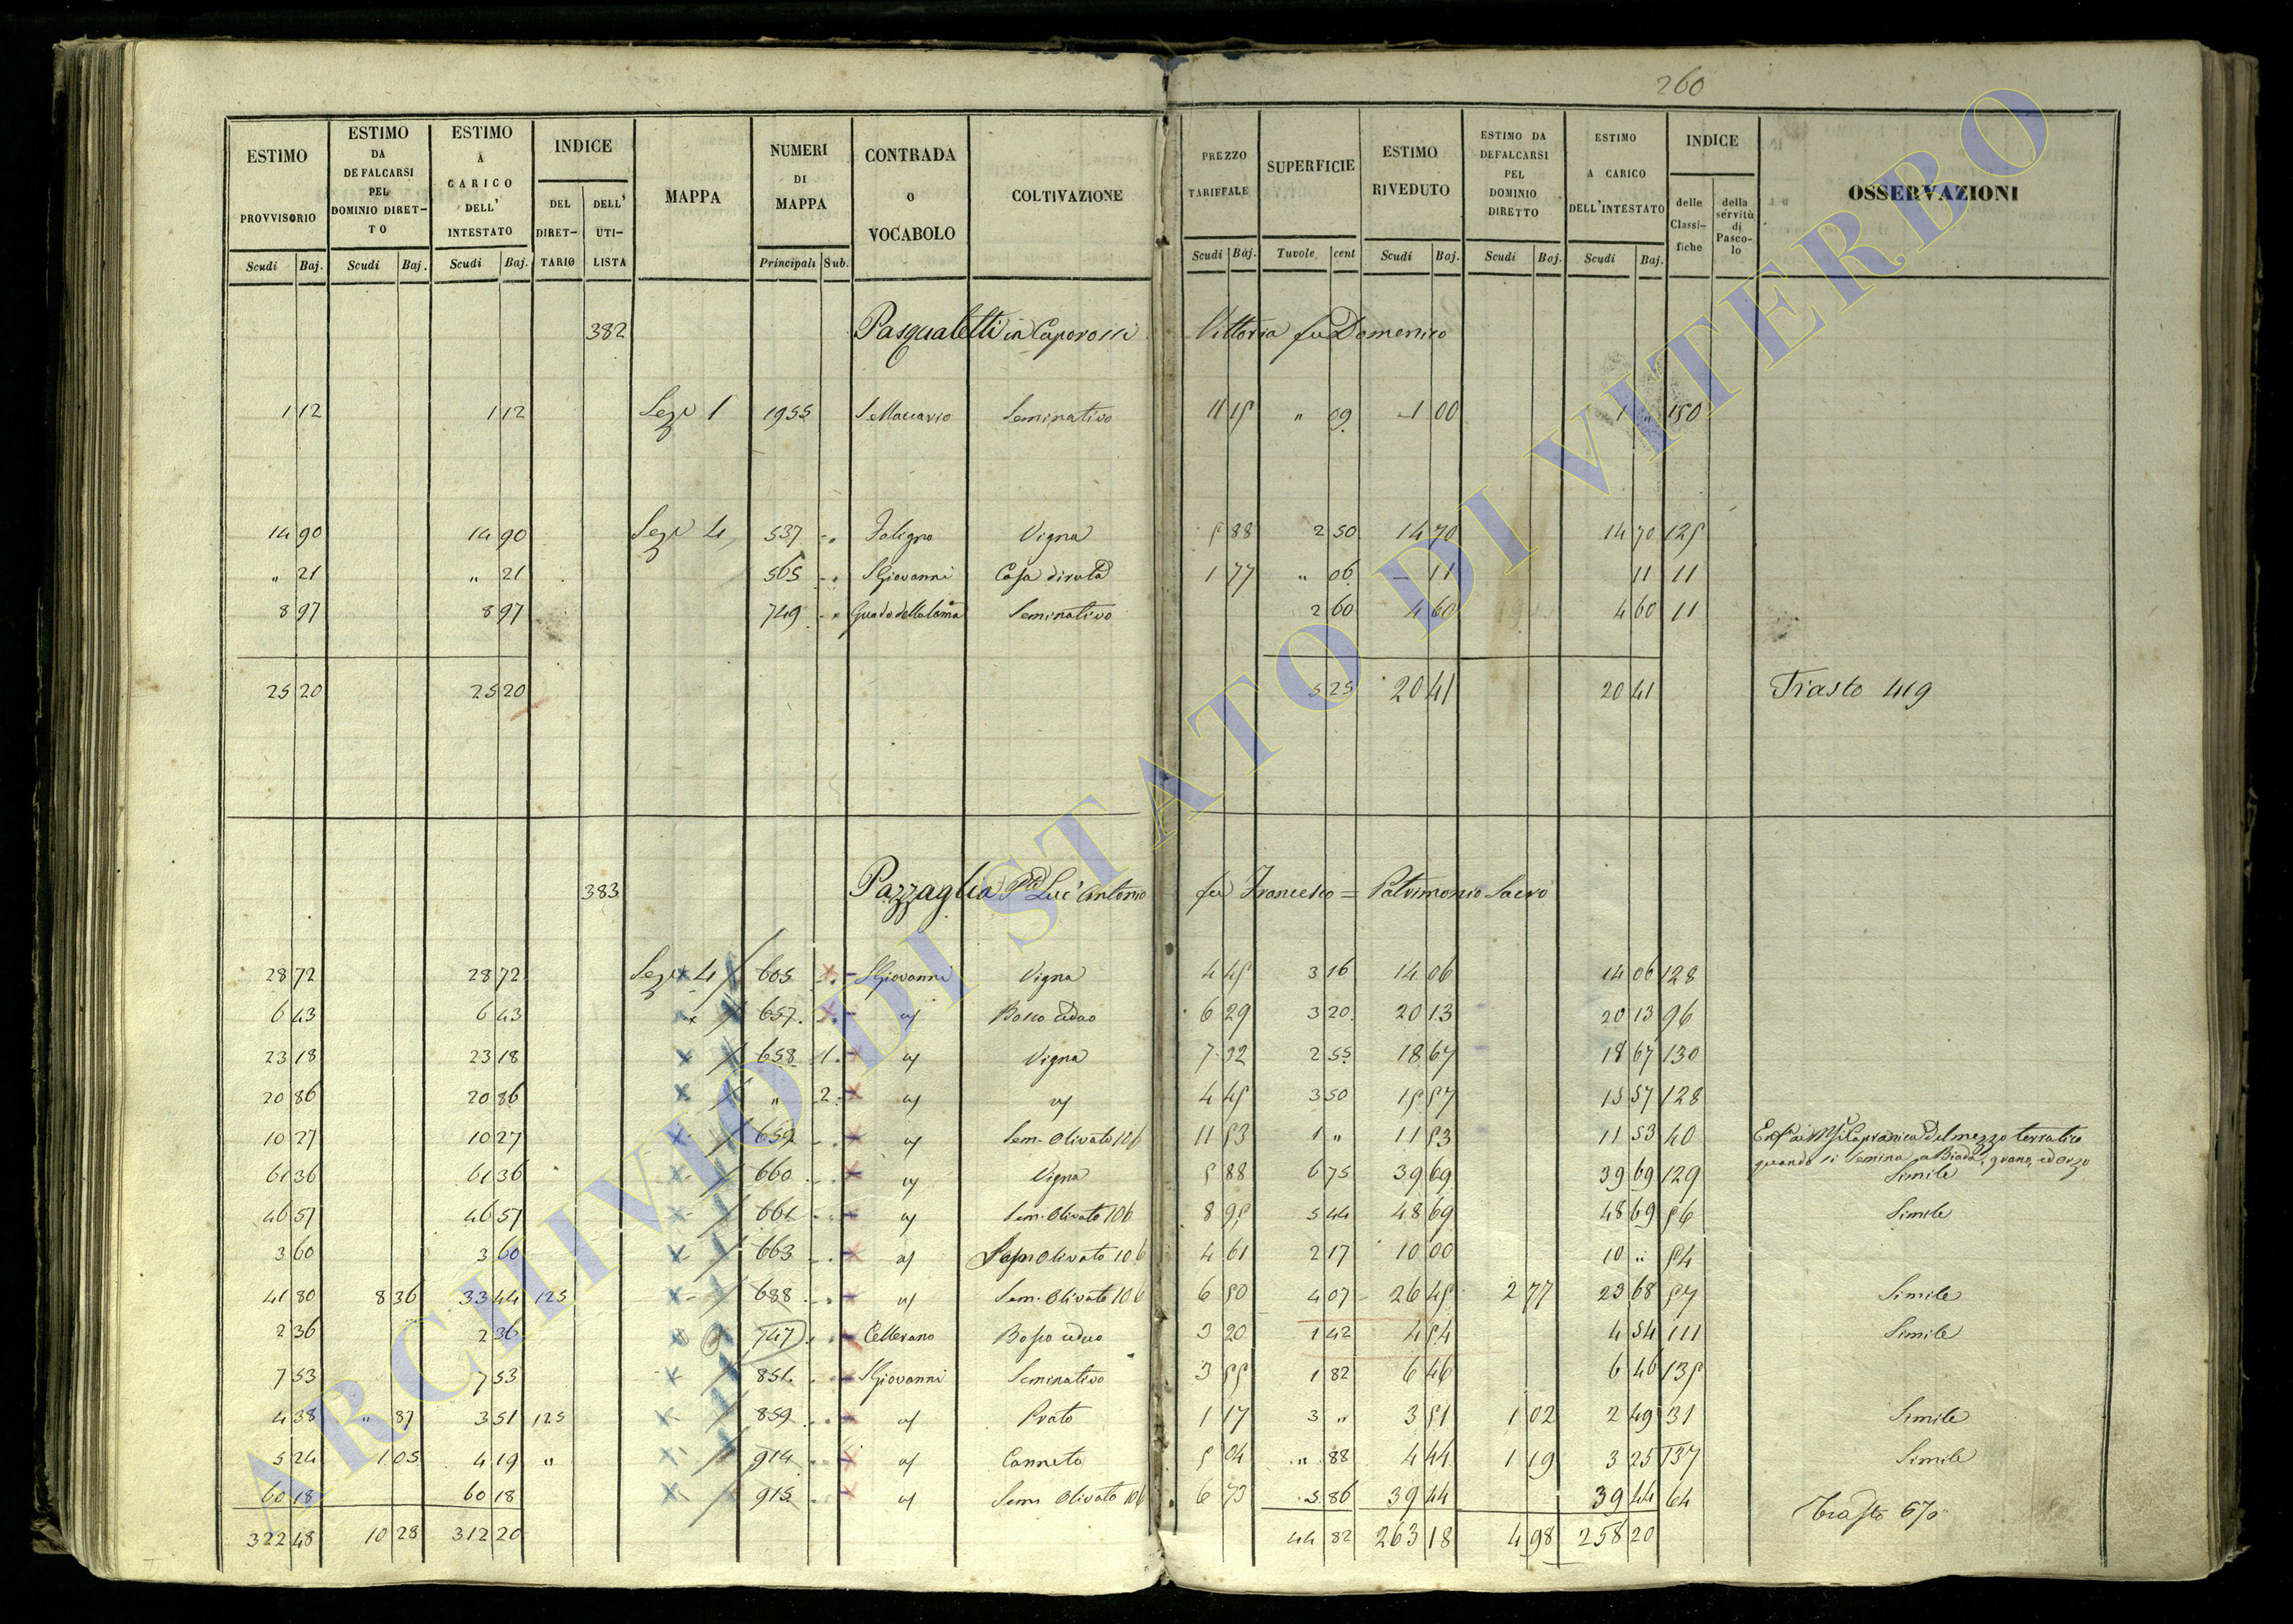 260
ESTIMO PROVVISORIO Scudi Baj. | ESTIMO DA DEFALCARSI PEL DOMINIO DIRET-TO Scudi Baj. | ESTIMO A CARICO DELL' INTESTATO Scudi Baj. | INDICE DEL DIRET-TARIO DELL' UTI-LISTA | MAPPA | NUMERI DI MAPPA Principali Sub. | CONTRADA O VOCABOLO | COLTIVAZIONE | PREZZO TARIFFALE Scudi Baj. | SUPERFICIE Tavole cent | ESTIMO RIVEDUTO Scudi Baj. | ESTIMO DA DEFALCARSI PEL DOMINIO DIRETTO Scudi Baj. | ESTIMO A CARICO DELL'INTESTATO Scudi Baj. | INDICE delle Classi-fiche della servitù di Pasco-lo | OSSERVAZIONI
382 Pasqualetti in Caporossi Vittoria fu Domenico
1 12 1 12 Sezе 1 1955 S Maccario Seminativo 11 15 " 09 1 00 1 " 150
14 90 14 90 Seze 4 537 Foligno Vigna 5 88 2 50 14 70 14 70 125
" 21 " 21 565 S Giovanni Casa diruta 1 77 " 06 – 11 11 11
8 97 8 97 749 Guado della lama Seminativo 2 60 4 60 4 60 11
25 20 25 20 5 25 20 41 20 41 Trasto 419
383 Pazzaglia Luc' Antonio fu Francesco = Patrimonio Sacro
28 72 28 72 Seze 4 605 S Giovanni Vigna 4 45 3 16 14 06 14 06 128
6 43 6 43 657 Bosco ceduo 6 29 3 20 20 13 20 13 96
23 18 23 18 658 1 Vigna 7 32 2 55 18 67 18 67 130
20 86 20 86 " 2 4 45 3 50 15 57 15 57 128
10 27 10 27 659 Sem. Olivato 106 11 53 1 " 11 53 11 53 40 Capranica del mezzo terratico
quando si semina a Biada, grano, ed orzo
61 36 61 36 660 Vigna 5 88 6 75 39 69 39 69 129 Simile
46 57 46 57 661 Sem. Olivato 106 8 95 5 44 48 69 48 69 56 Simile
3 60 3 60 663 Olivato 106 4 61 2 17 10 00 10 " 54
41 80 8 36 33 44 125 688 Sem. Olivato 106 6 50 4 07 26 45 2 77 23 68 57 Simile
2 36 2 36 747 Cellerano Bosco ceduo 3 20 1 42 4 54 4 54 111 Simile
7 53 7 53 851 S Giovanni Seminativo 3 55 1 82 6 46 6 46 135
4 38 " 87 3 51 125 859 Prato 1 17 3 " 3 51 1 02 2 49 31 Simile
5 24 1 05 4 19 " 914 Canneto 5 04 " 88 4 44 1 19 3 25 137 Simile
60 18 60 18 915 Sem Olivato 106 6 73 5 86 39 44 39 44 64
322 48 10 28 312 20 44 82 263 18 4 98 258 20 Trasto 670
ARCHIVIO DI STATO DI VITERBO